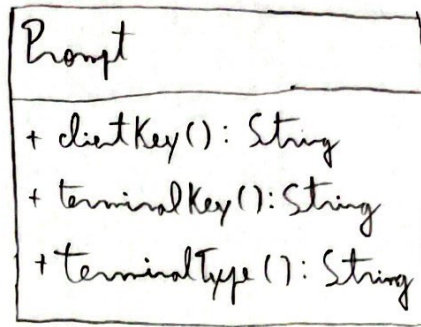 Prompt
+ clientKey(): String
+ terminalKey(): String
+ terminalType(): String